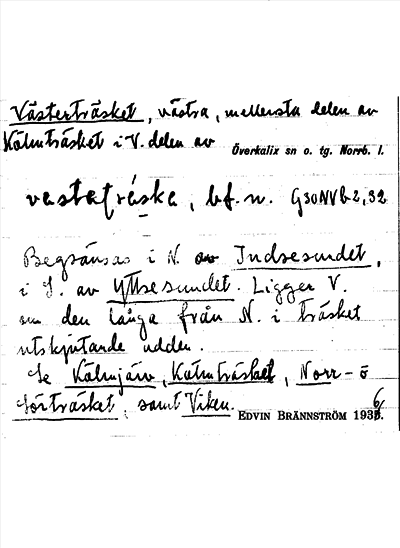 Västerträsket, västra, mellersta delen av
Kälmträsket i V. delen av
Överkalix sn o. tg. Norrb. l.
vestatráska, bf. n. G30NVb2,32
Begränsas i N. av Indsesundet,
i S. av Yttsesundet. Ligger V.
om den långa från N. i träsket
utskjutande udden.
Se Kälmjärv, Kälmträsket, Norr- o
Sörträsket, samt Viken.
EDVIN BRÄNNSTRÖM 1936.